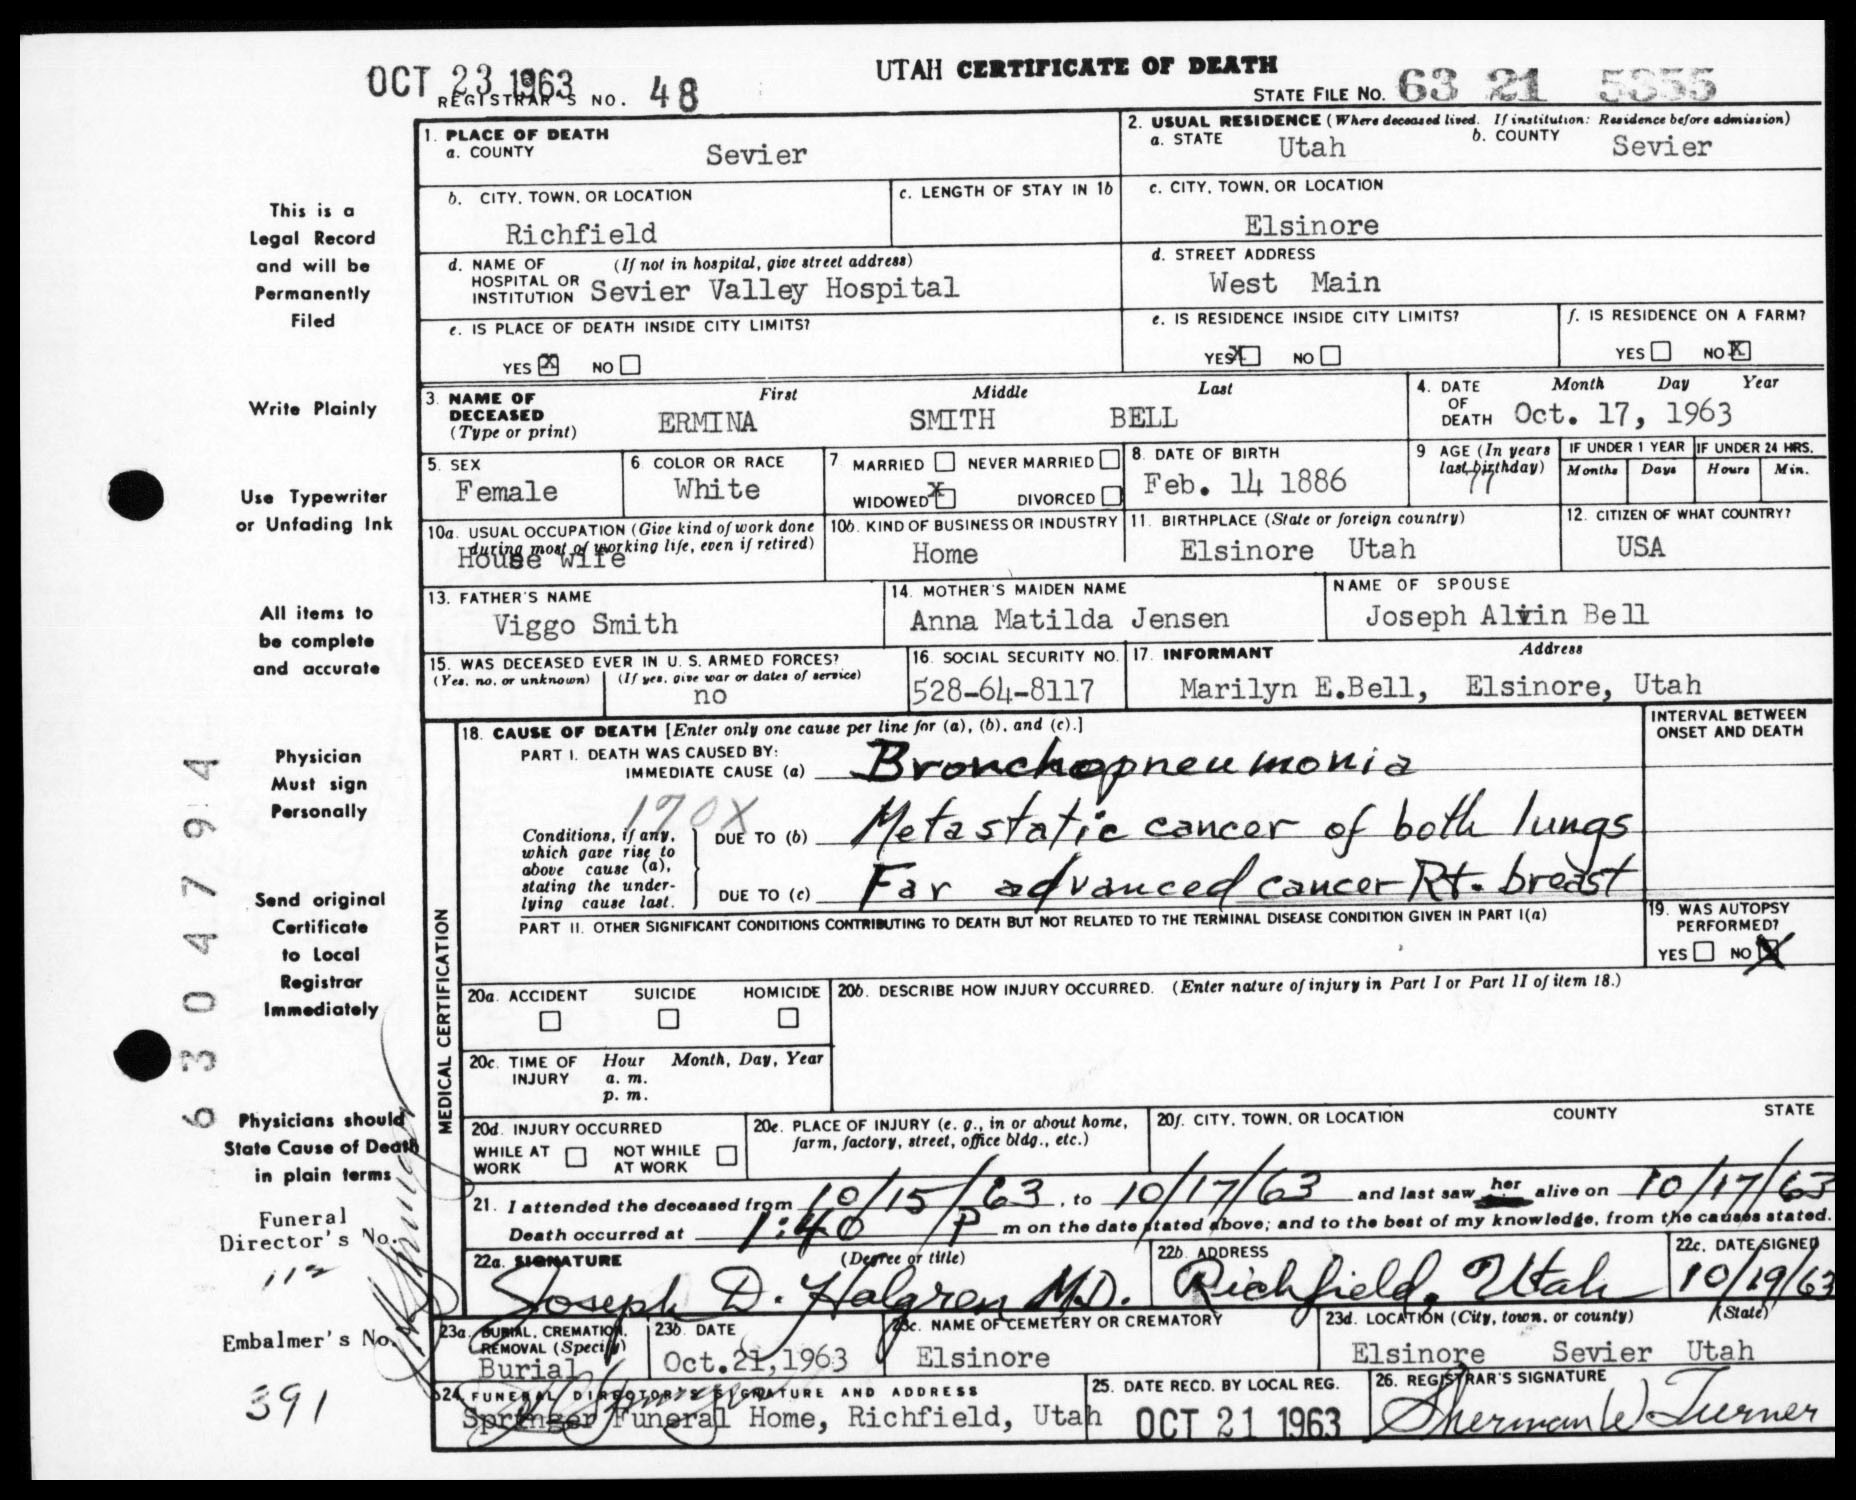 OCT 23 1963
UTAH CERTIFICATE OF DEATH
REGISTRAR'S NO. 48
STATE FILE NO. 63 21 5355
1. PLACE OF DEATH
a. COUNTY
Sevier
2. USUAL RESIDENCE (Where deceased lived. If institution: Residence before admission)
a. STATE Utah b. COUNTY Sevier
b. CITY, TOWN, OR LOCATION
Richfield
c. LENGTH OF STAY IN 1b
c. CITY, TOWN, OR LOCATION
Elsinore
d. NAME OF HOSPITAL OR INSTITUTION (If not in hospital, give street address)
Sevier Valley Hospital
d. STREET ADDRESS
West Main
e. IS PLACE OF DEATH INSIDE CITY LIMITS?
YES X NO
e. IS RESIDENCE INSIDE CITY LIMITS?
YES X NO
f. IS RESIDENCE ON A FARM?
YES NO X
3. NAME OF DECEASED (Type or print)
First Middle Last
ERMINA SMITH BELL
4. DATE OF DEATH Month Day Year
Oct. 17, 1963
5. SEX
Female
6 COLOR OR RACE
White
7 MARRIED NEVER MARRIED
WIDOWED X DIVORCED
8. DATE OF BIRTH
Feb. 14 1886
9 AGE (In years last birthday)
77
IF UNDER 1 YEAR
Months Days
IF UNDER 24 HRS.
Hours Min.
10a. USUAL OCCUPATION (Give kind of work done during most of working life, even if retired)
House wife
10b. KIND OF BUSINESS OR INDUSTRY
Home
11. BIRTHPLACE (State or foreign country)
Elsinore Utah
12. CITIZEN OF WHAT COUNTRY?
USA
13. FATHER'S NAME
Viggo Smith
14. MOTHER'S MAIDEN NAME
Anna Matilda Jensen
NAME OF SPOUSE
Joseph Alvin Bell
15. WAS DECEASED EVER IN U. S. ARMED FORCES?
(Yes, no, or unknown) (If yes, give war or dates of service)
no
16. SOCIAL SECURITY NO.
528-64-8117
17. INFORMANT Address
Marilyn E.Bell, Elsinore, Utah
MEDICAL CERTIFICATION
18. CAUSE OF DEATH [Enter only one cause per line for (a), (b), and (c).]
INTERVAL BETWEEN
ONSET AND DEATH
PART I. DEATH WAS CAUSED BY:
IMMEDIATE CAUSE (a) Bronchopneumonia
170X
Conditions, if any,
which gave rise to
above cause (a),
stating the under-
lying cause last.
DUE TO (b) Metastatic cancer of both lungs
DUE TO (c) Far advanced cancer Rt. breast
PART II. OTHER SIGNIFICANT CONDITIONS CONTRIBUTING TO DEATH BUT NOT RELATED TO THE TERMINAL DISEASE CONDITION GIVEN IN PART I(a)
19. WAS AUTOPSY
PERFORMED?
YES NO X
20a. ACCIDENT SUICIDE HOMICIDE
20b. DESCRIBE HOW INJURY OCCURRED. (Enter nature of injury in Part I or Part II of item 18.)
20c. TIME OF INJURY Hour Month, Day, Year
a. m.
p. m.
20d. INJURY OCCURRED
WHILE AT WORK NOT WHILE AT WORK
20e. PLACE OF INJURY (e. g., in or about home,
farm, factory, street, office bldg., etc.)
20f. CITY, TOWN, OR LOCATION COUNTY STATE
21. I attended the deceased from 10/15/63, to 10/17/63 and last saw her alive on 10/17/63
Death occurred at 1:40 P m on the date stated above; and to the best of my knowledge, from the causes stated.
22a. SIGNATURE (Degree or title)
Joseph D. Halgren M.D.
22b. ADDRESS
Richfield, Utah
22c. DATE SIGNED
10/19/63
23a. BURIAL, CREMATION, REMOVAL (Specify)
Burial
23b. DATE
Oct.21,1963
23c. NAME OF CEMETERY OR CREMATORY
Elsinore
23d. LOCATION (City, town, or county) (State)
Elsinore Sevier Utah
24. FUNERAL DIRECTOR'S SIGNATURE AND ADDRESS
Springer Funeral Home, Richfield, Utah
25. DATE RECD. BY LOCAL REG.
OCT 21 1963
26. REGISTRAR'S SIGNATURE
Sherman W Turner
This is a
Legal Record
and will be
Permanently
Filed
Write Plainly
Use Typewriter
or Unfading Ink
All items to
be complete
and accurate
Physician
Must sign
Personally
Send original
Certificate
to Local
Registrar
Immediately
Physicians should
State Cause of Death
in plain terms
Funeral
Director's No.
112
Embalmer's No.
391
6304794